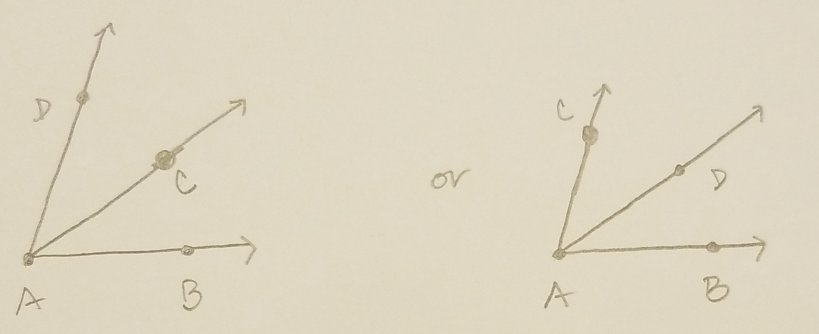 D
C
A
B
or
C
D
A
B